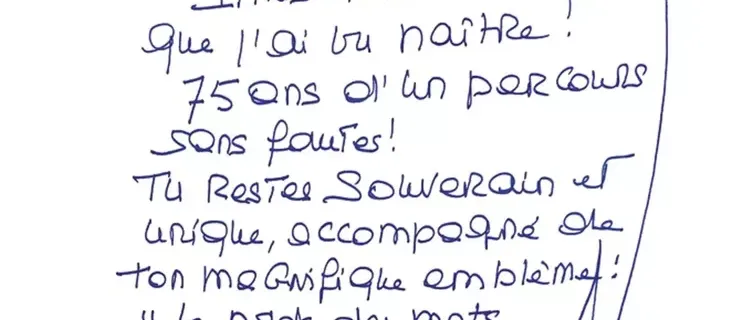 que j'ai vu naître !
75 ans d'un parcours
sans fautes !
Tu restes Souverain et
unique, accompagné de
ton magnifique emblème !
" le poids des mots